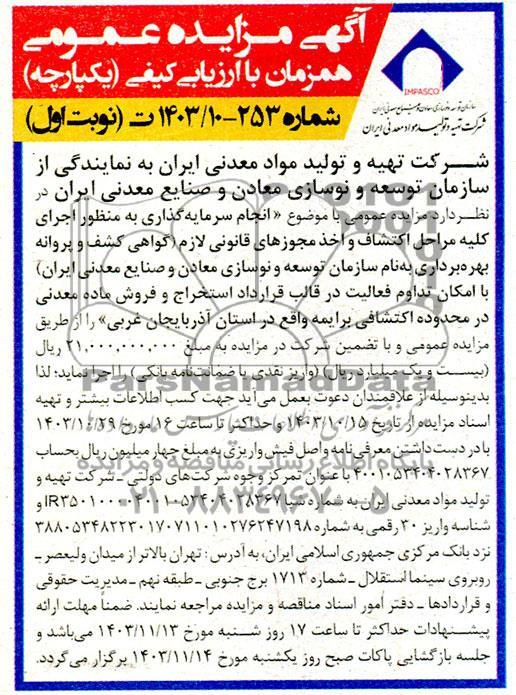 آگهی مزایده عمومی
همزمان با ارزیابی کیفی (یکپارچه)
شماره ۲۵۳-۱۴۰۳/۱۰ ت (نوبت اول)
IMPASCO
شرکت تهیه و تولید مواد معدنی ایران
شرکت تهیه و تولید مواد معدنی ایران به نمایندگی از
سازمان توسعه و نوسازی معادن و صنایع معدنی ایران در
نظر دارد مزایده عمومی با موضوع « انجام سرمایه‌گذاری به منظور اجرای
کلیه مراحل اکتشاف و اخذ مجوزهای قانونی لازم (گواهی کشف و پروانه
بهره‌برداری به‌نام سازمان توسعه و نوسازی معادن و صنایع معدنی ایران)
با امکان تداوم فعالیت در قالب قرارداد استخراج و فروش ماده معدنی
در محدوده اکتشافی برایمه واقع در استان آذربایجان غربی» را از طریق
مزایده عمومی و با تضمین شرکت در مزایده به مبلغ ۲۱,۰۰۰,۰۰۰,۰۰۰ ریال
(بیست و یک میلیارد ریال) (واریز نقدی یا ضمانت‌نامه بانکی) را اجرا نماید؛ لذا
بدینوسیله از علاقمندان دعوت بعمل می‌آید جهت کسب اطلاعات بیشتر و تهیه
اسناد مزایده از تاریخ ۱۴۰۳/۱۰/۱۵ و حداکثر تا ساعت ۱۶ مورخ ۱۴۰۳/۱۰/۲۹
با در دست داشتن معرفی‌نامه و اصل فیش واریزی به مبلغ چهار میلیون ریال بحساب
۴۰۰۱۰۵۳۴۰۴۰۲۸۳۶۷ با عنوان تمرکز وجوه شرکت‌های دولتی ـ شرکت تهیه و
تولید مواد معدنی ایران به شماره شبا
شناسه واریز ۳۰ رقمی به شماره ۳۸۸۰۵۳۴۸۲۲۳۰۱۷۰۷۱۱۰۱۰۲۷۶۲۴۷۱۹۸
نزد بانک مرکزی جمهوری اسلامی ایران، به آدرس : تهران بالاتر از میدان ولیعصر ـ
روبروی سینما استقلال ـ شماره ۱۷۱۳ برج جنوبی ـ طبقه نهم ـ مدیریت حقوقی
و قراردادها ـ دفتر امور اسناد مناقصه و مزایده مراجعه نمایند. ضمناً مهلت ارائه
پیشنهادات حداکثر تا ساعت ۱۷ روز شنبه مورخ ۱۴۰۳/۱۱/۱۳ می‌باشد و
جلسه بازگشایی پاکات صبح روز یکشنبه مورخ ۱۴۰۳/۱۱/۱۴ برگزار می‌گردد.
ParsNamadData
پایگاه اطلاع رسانی مناقصه و مزایده
۰۲۱-۸۸۳۴۹۶۷۰-۵